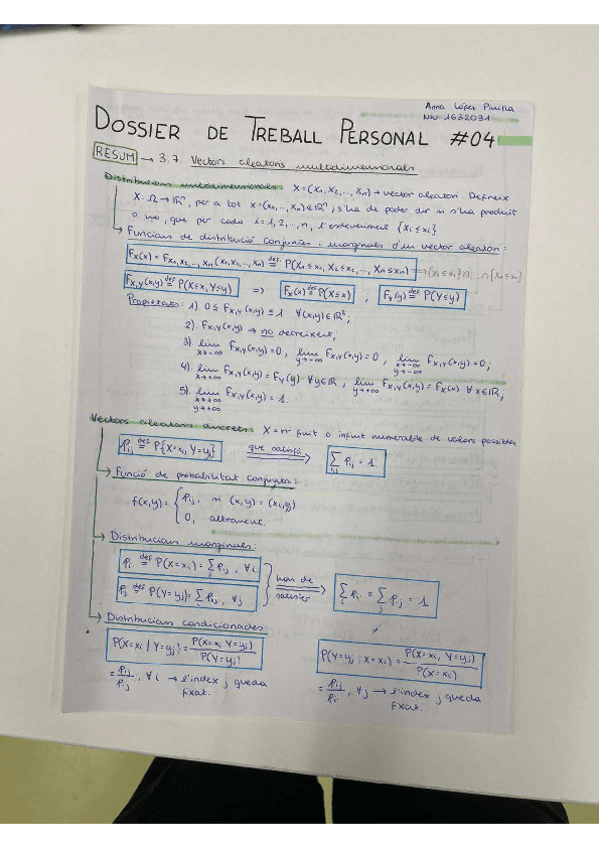 Anna López Pinilla
NIU: 1632031
DOSSIER DE TREBALL PERSONAL #04
RESUM → 3.7. Vectors aleatoris multidimensionals
Distribucions multidimensionals X=(X₁, X₂, ..., Xₙ) → vector aleatori. Defineix
X: Ω → ℝⁿ, per a tot x=(x₁, ..., xₙ) ∈ ℝⁿ; s'ha de poder dir si s'ha produït
o no, que per cada i=1, 2, ..., n, l'esdeveniment {Xi ≤ xi}
→ Funcions de distribució conjuntes i marginals d'un vector aleatori:
Fx(x) = Fx₁, x₂, ..., xₙ (x₁, x₂, ..., xₙ) ≝ P(X₁ ≤ x₁, X₂ ≤ x₂, ..., Xₙ ≤ xₙ) → {X₁ ≤ x₁} ∩ ... ∩ {Xₙ ≤ xₙ}
Fx,y(x,y) ≝ P(X≤x, Y≤y) ⇒ Fx(x) ≝ P(X≤x) ; Fy(y) ≝ P(Y≤y)
Propietats: 1) 0 ≤ Fx,y(x,y) ≤ 1 ∀(x,y) ∈ ℝ²;
2) Fx,y(x,y) → no decreixent;
3) lim x→-∞ Fx,y(x,y)=0, lim y→-∞ Fx,y(x,y)=0, lim x→-∞ y→-∞ Fx,y(x,y)=0;
4) lim x→+∞ Fx,y(x,y) = Fy(y) ∀y∈ℝ, lim y→+∞ Fx,y(x,y) = Fx(x) ∀x∈ℝ;
5) lim x→+∞ y→+∞ Fx,y(x,y) = 1.
Vectors aleatoris discrets X = nº finit o infinit numerable de valors possibles
Pij ≝ P{X=xi, Y=yj} que satisfà ⇒ Σ i,j Pij = 1
→ Funció de probabilitat conjunta:
f(x,y) = { Pij, si (x,y) = (xi,yj)
0, altrament.
→ Distribucions marginals:
Pi· ≝ P(X=xi) = Σj Pij, ∀i
P·j ≝ P(Y=yj) = Σi Pij, ∀j } han de satisfer ⇒ Σi Pi· = Σj P·j = 1
→ Distribucions condicionades
P(X=xi | Y=yj) = P(X=xi, Y=yj) / P(Y=yj) P(Y=yj | X=xi) = P(X=xi, Y=yj) / P(X=xi)
= Pij / P·j, ∀i → l'índex j queda = Pij / Pi·, ∀j → l'índex i queda
fixat. fixat.